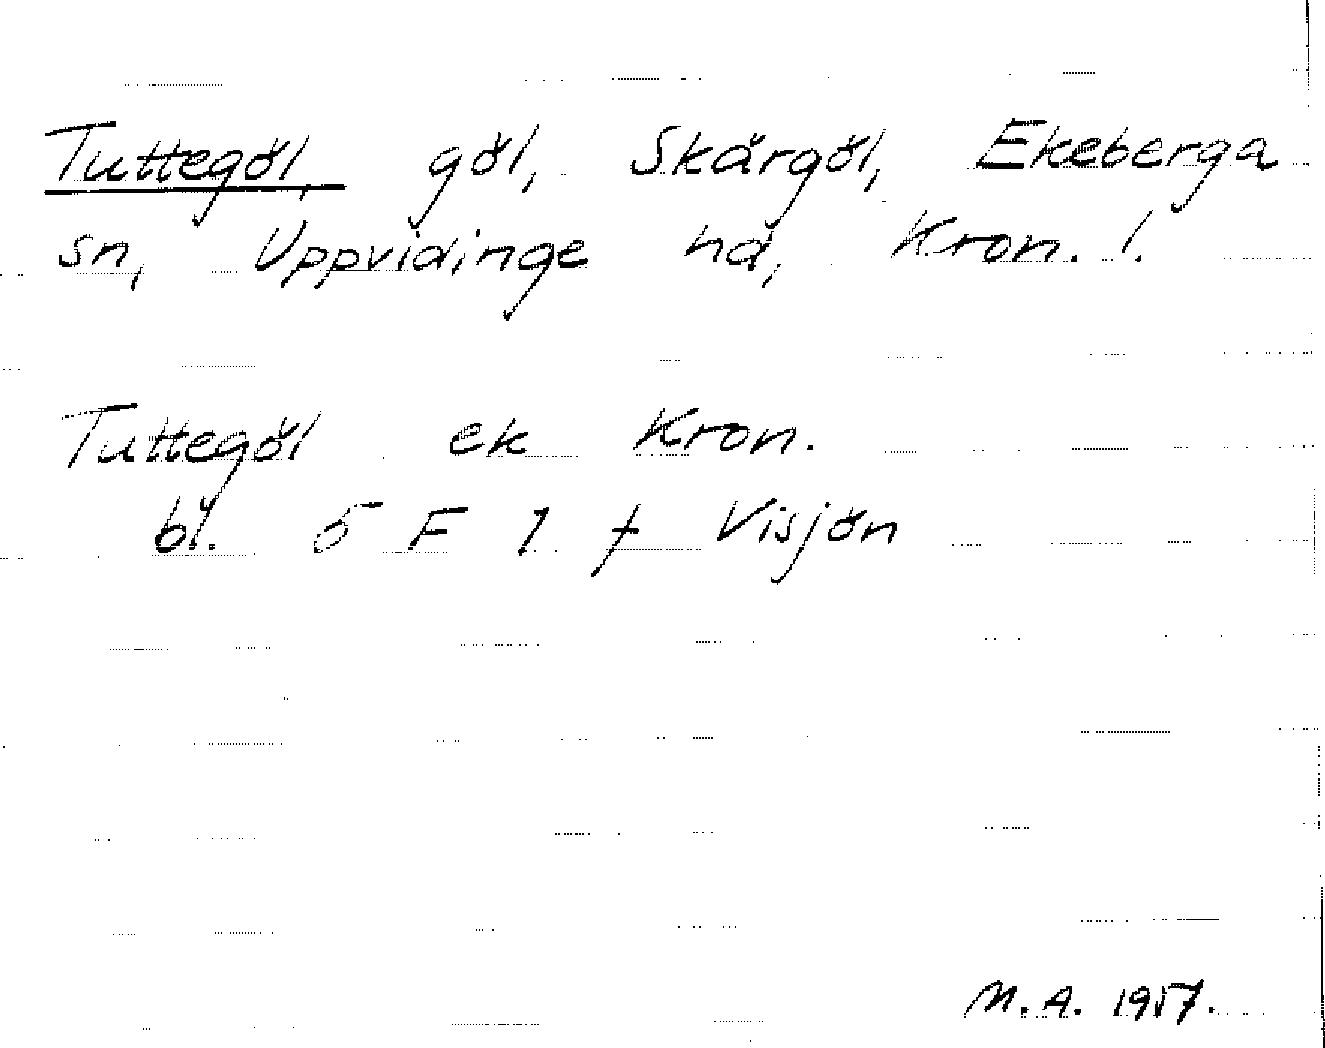 Tuttegöl, göl, Skärgöl, Ekeberga
sn, Uppvidinge hd, Kron. !.
Tuttegöl ek Kron.
bl. 5 F 7 f Visjön
M.A. 1957.